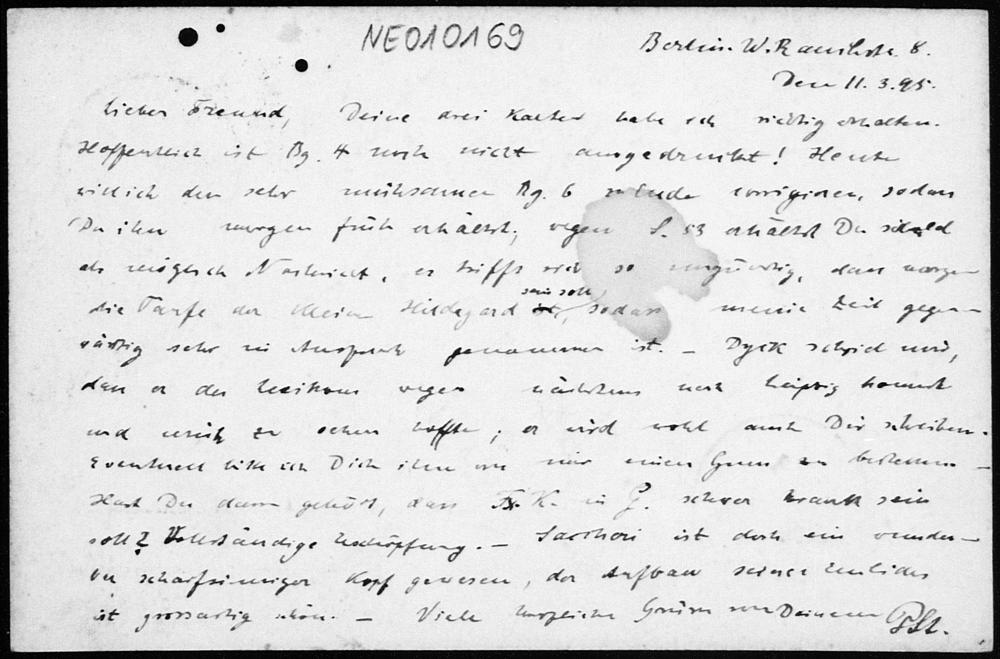 NE010169
Berlin. W. Rauchstr. 8.
Den 11. 3. 95.
Lieber Freund, Deine drei Karten habe ich richtig erhalten.
Hoffentlich ist Bg. 4 noch nicht ausgedruckt! Heute
will ich den sehr mühsamen Bg. 6 zu Ende corrigieren, sodass
Du ihn morgen früh erhältst; wegen S. 53 erhältst Du sobald
als möglich Nachricht, es trifft sich so ungünstig, dass morgen
die Taufe der kleinen Hildegard sein soll, sodass meine Zeit gegen-
wärtig sehr in Anspruch genommen ist. — Dyck schrieb mir,
dass er des Lexikons wegen nächstens nach Leipzig kommt
und mich zu sehen hoffte; er wird wohl auch Dir schreiben.
Eventuell bitte ich Dich ihm von mir einen Gruss zu bestellen —
Hast Du davon gehört, dass F. K. in G. schwer krank sein
soll? Vollständige Erschöpfung. — Saccheri ist doch ein wunder-
bar scharfsinniger Kopf gewesen, der Aufbau seines Euclides
ist grossartig schön. — Viele herzliche Grüsse von Deinem PSt.